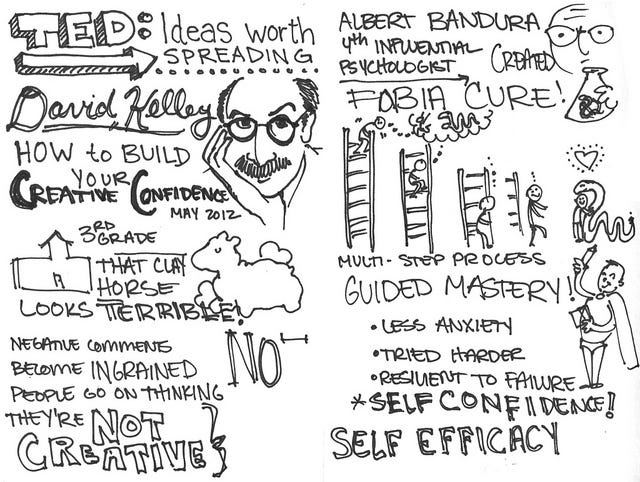 TED: Ideas worth
SPREADING
David Kelley
HOW to BUILD
YOUR
CREATIVE CONFIDENCE
MAY 2012
3RD
GRADE
THAT CLAY
HORSE
LOOKS TERRIBLE!
NEGATIVE COMMENTS
BECOME INGRAINED
PEOPLE GO ON THINKING
THEY'RE NOT
CREATIVE
NO
ALBERT BANDURA
4th INFLUENTIAL
PSYCHOLOGIST
CREATED
FOBIA CURE!
MULTI-STEP PROCESS
GUIDED MASTERY!
•LESS ANXIETY
•TRIED HARDER
•RESILIENT TO FAILURE
*SELF CONFIDENCE!
SELF EFFICACY